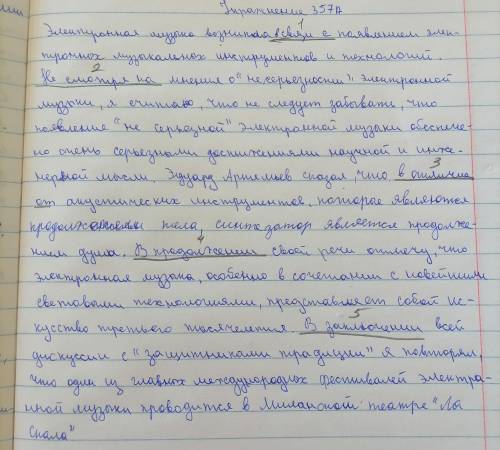 Упражнение 357А
Электронная музыка возникла в связи с появлением элек-
1
тронных музыкальных инструментов и технологий.
2
Не смотря на мнения о "несерьезности" электронной
музыки, я считаю, что не следует забывать, что
появление "не серьезной" электронной музыки обеспече-
но очень серьезными достижениями научной и инже-
3
нерной мысли. Эдуард Артемьев сказал, что в отличие
от акустических инструментов, которые являются
продолжениями тела, синтезатор является продолже-
4
нием души. В продолжении своей речи отмечу, что
электронная музыка, особенно в сочетании с новейшими
световыми технологиями, представляет собой ис-
5
кусство третьего тысячелетия. В заключении всей
дискуссии с "защитниками традиции" я повторял,
что один из главных международных фестивалей электро-
нной музыки проводится в Миланском театре "Ла
Скала"